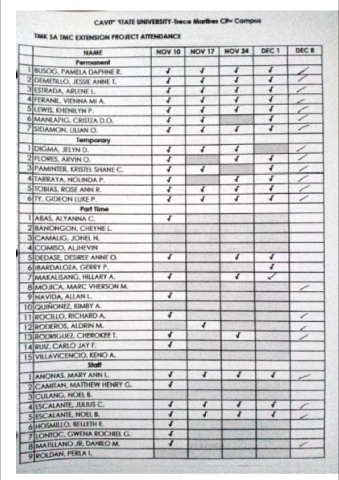 CAVITE STATE UNIVERSITY-Trece Martires City Campus
TMK SA TMC EXTENSION PROJECT ATTENDANCE
NAME NOV 10 NOV 17 NOV 24 DEC 1 DEC 8
Permanent
1 BUSOG, PAMELA DAPHNE R. √ √ √ √ ✓
2 DEMETILLO, JESSIE ANNE T. √ √ √ √ ✓
3 ESTRADA, ARLENE L. √ √ √ √ ✓
4 FERANIL, VIENNA MI A. √ √ √ √ ✓
5 LEWIS, KHENILYN P. √ √ √ √ ✓
6 MANLAPIG, CRISTZA D.O. √ √ √ ✓
7 SIDAMON, LILIAN O. √ √ √ √ ✓
Temporary
1 DIGMA, JELYN D. √ √ √ ✓
2 FLORES, ARVIN O. √ √ √ ✓
3 PAMINTER, KRISTEL SHANE C. √ √ √ ✓
4 TARRAYA, NOLINDA P. √ √ √ ✓
5 TOBIAS, ROSE ANN R. √ √ √ √ ✓
6 TY, GIDEON LUKE P. √ √ √ √ ✓
Part Time
1 ABAS, ALYANNA C. √
2 BANONGON, CHEYNE L.
3 CAMALIG, JONEL N.
4 COMISO, ALJHEVIN
5 DEDASE, DESIREE ANNE O. √ √ √
6 IBARDALOZA, GERRY P. √
7 MAKALISANG, HILLARY A. √ √ ✓
8 MOJICA, MARC VHERSON M. ✓
9 NAVIDA, ALLAN L. √
10 QUIÑONEZ, KIMBY A.
11 ROCILLO, RICHARD A. √ ✓
12 RODEROS, ALDRIN M. √
13 RODRIGUEZ, CHEROKEE T. √ √ ✓
14 RUIZ, CARLO JAY F. √
15 VILLAVICENCIO, KENO A.
Staff
1 ANONAS, MARY ANN L. √ √ √ √ ✓
2 CAMITAN, MATTHEW HENRY G. √
3 CULANG, NOEL B.
4 ESCALANTE, JULIUS C. √ √ √ √ ✓
5 ESCALANTE, NOEL B. √ √ √ √ ✓
6 HOSMILLO, BELLETH E. √
7 LONTOC, GWENA ROCHIEL G. √
8 MATILLANO JR, DANILO M. √ ✓
9 ROLDAN, PERLA I.